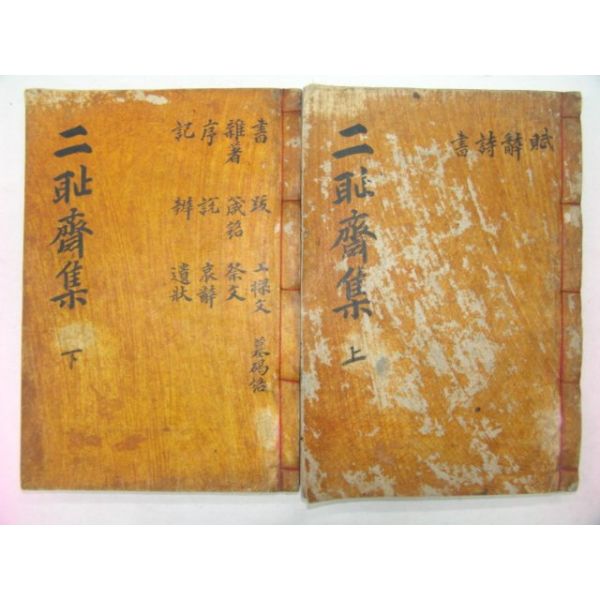 賦
辭
詩
書
二耻齋集 上
書 跋 上樑文 墓碣銘
雜著 箴銘 祭文
序 說 哀辭
記 辨 遺狀
二耻齋集 下